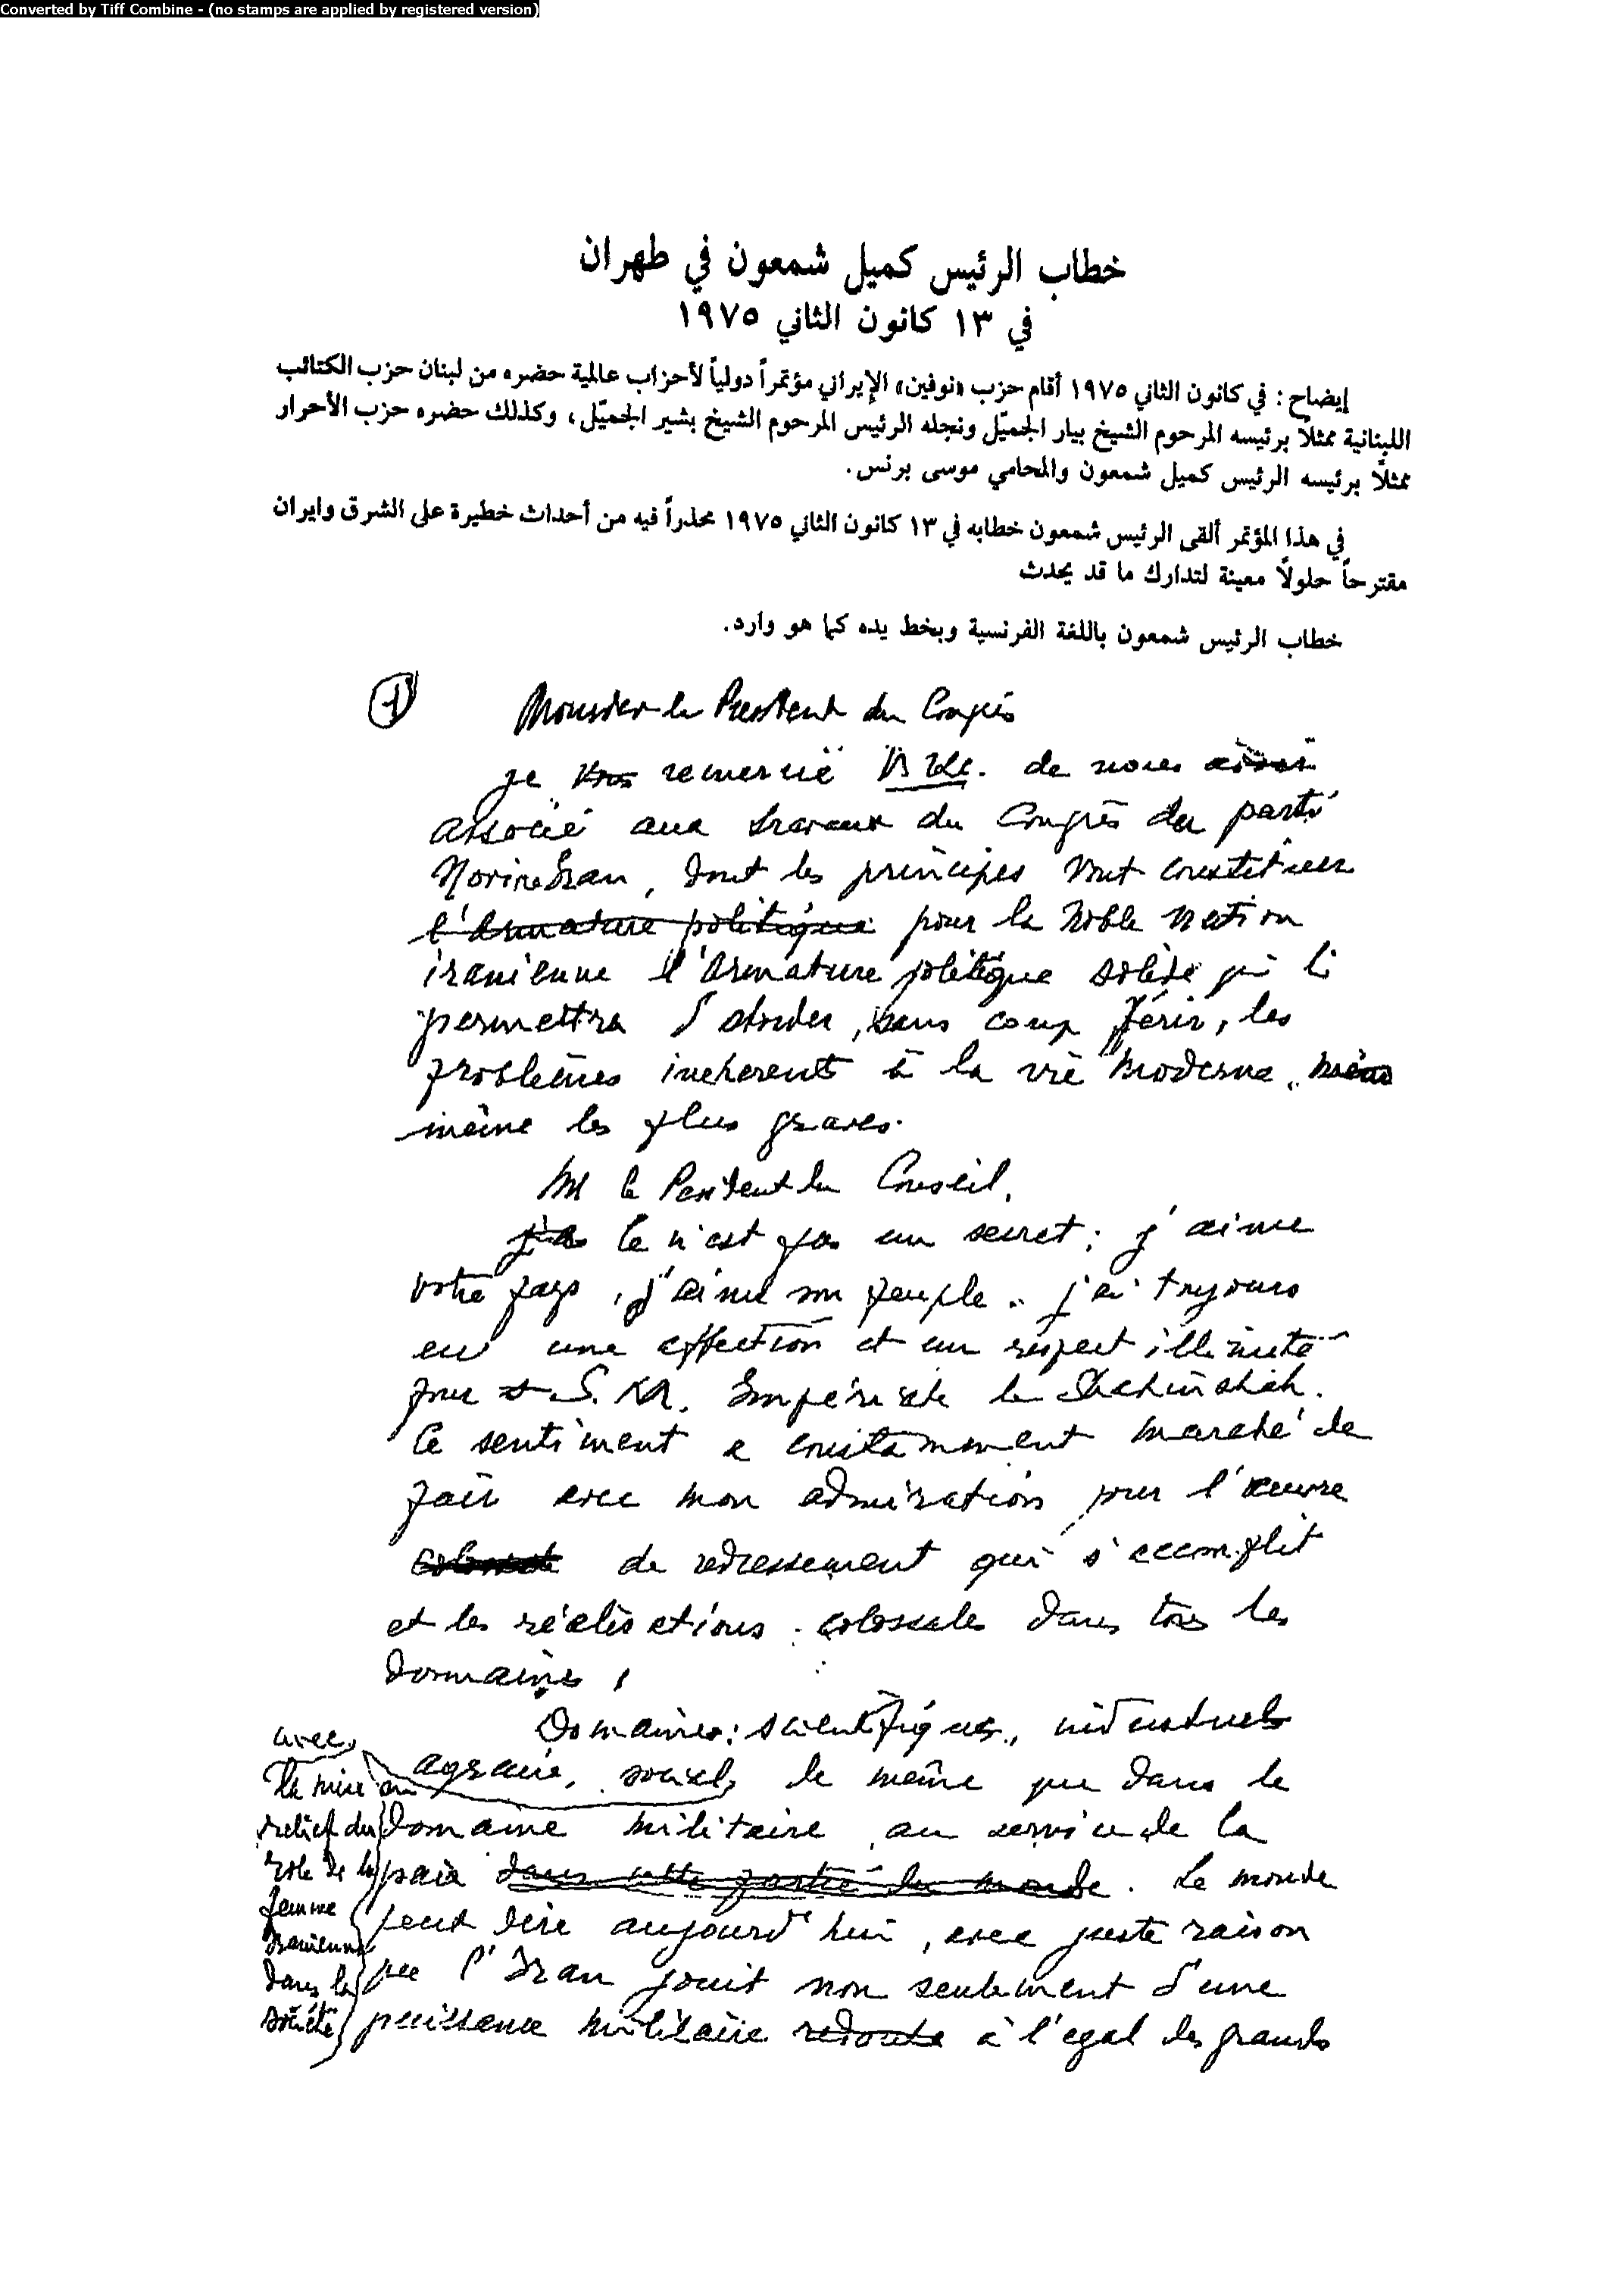 Converted by Tiff Combine - (no stamps are applied by registered version)
خطاب الرئيس كميل شمعون في طهران
في ١٣ كانون الثاني ١٩٧٥
إيضاح: في كانون الثاني ١٩٧٥ أقام حزب «نوفين» الإيراني مؤتمراً دولياً لأحزاب عالمية حضره من لبنان حزب الكتائب
اللبنانية ممثلاً برئيسه المرحوم الشيخ بيار الجميّل ونجله الرئيس المرحوم الشيخ بشير الجميّل، وكذلك حضره حزب الأحرار
ممثلاً برئيسه الرئيس كميل شمعون والمحامي موسى برنس.
في هذا المؤتمر ألقى الرئيس شمعون خطابه في ١٣ كانون الثاني ١٩٧٥ محذراً فيه من أحداث خطيرة على الشرق وايران
مقترحاً حلولاً معينة لتدارك ما قد يحدث
خطاب الرئيس شمعون باللغة الفرنسية وبخط يده كما هو وارد.
1
Monsieur le President du Congrès
je vous remercie de nous
associé aux travaux du Congrès du parti
dont les principes vont constituer
l'armature politique pour la noble nation
iranienne l'armature politique solide qui li
permettra d'aborder, sans coup férir, les
problèmes inherents à la vie moderne, même
même les plus graves.
M le President du Conseil,
Ce n'est pas un secret; j'aime
votre pays, j'aime son peuple. j'ai toujours
eu une affection et un respect illimité
pour S. M. Impériale le Shahinshah.
Ce sentiment a constamment marché de
pair avec mon admiration pour l'œuvre
de redressement qui s'accomplit
et les réalisations colossales dans tous les
domaines,
Domaines: scientifiques, industriels
agraire, social, de même que dans le
domaine militaire au service de la
paix dans cette partie du monde. Le monde
peut dire aujourd'hui, avec juste raison
que l'Iran jouit non seulement d'une
puissance militaire à l'egal des grands
avec
la mise en
relief du
role de la
femme
iranienne
dans la
société